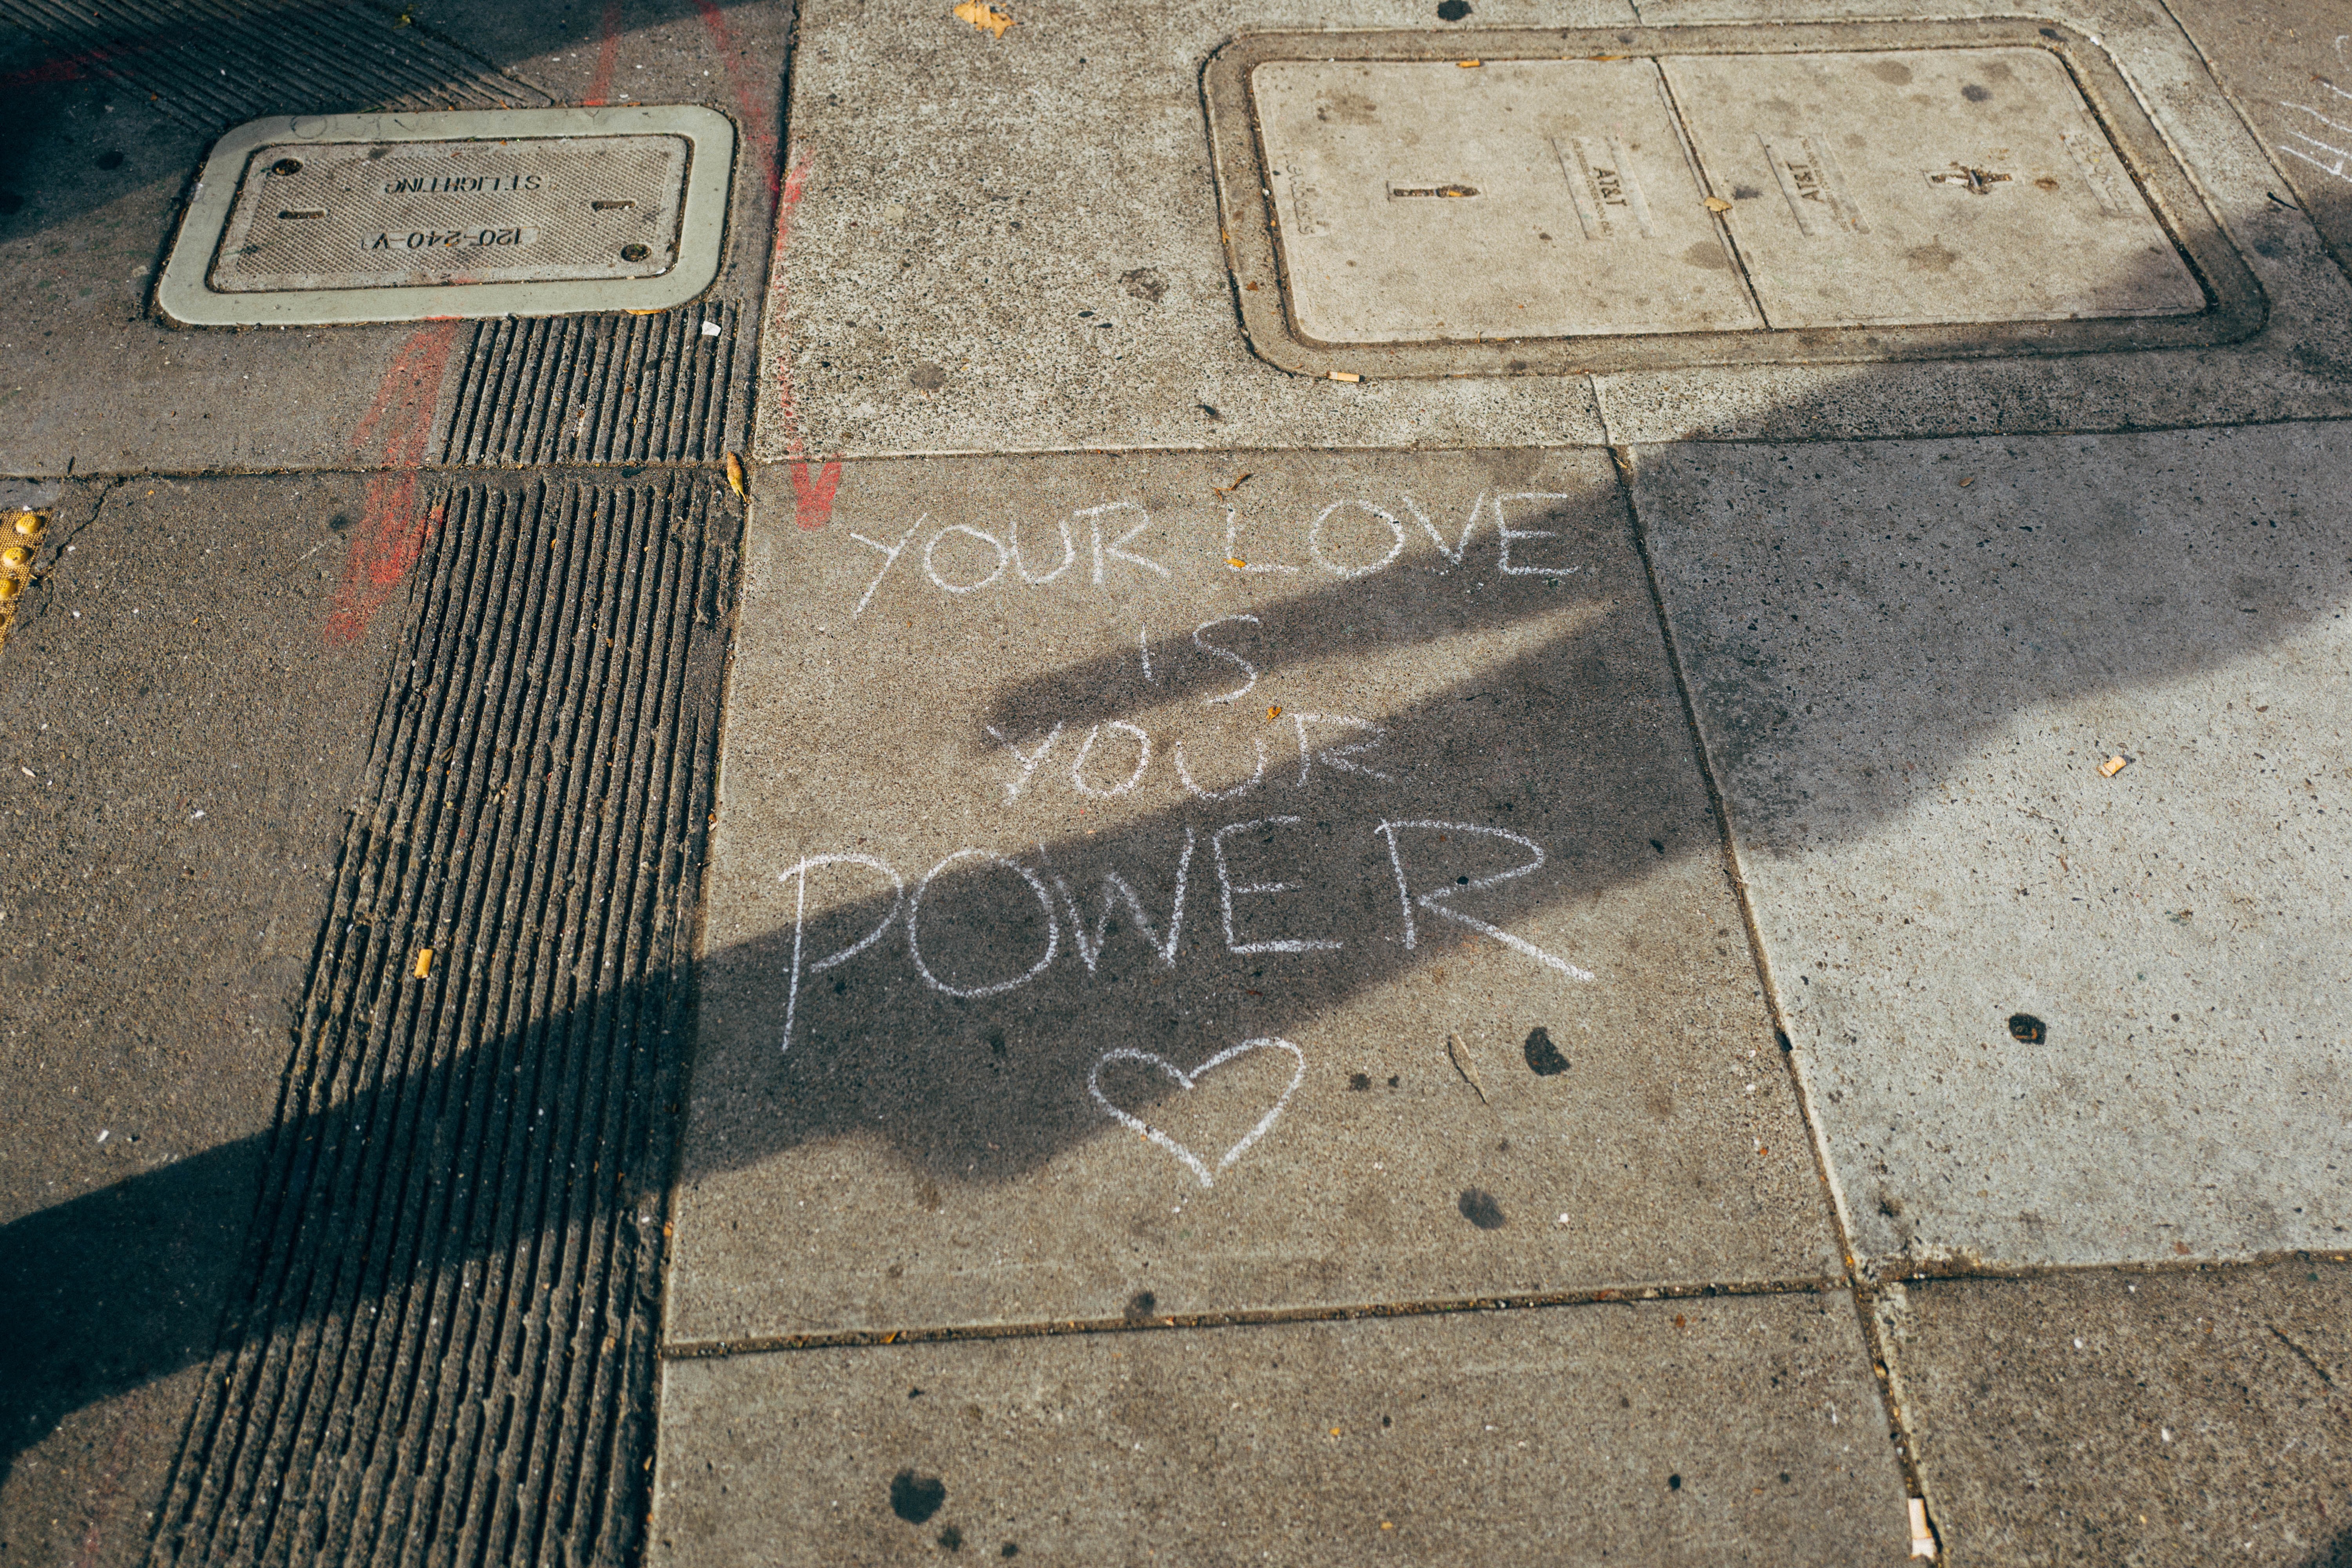 ST. LIGHTING
120-240-V
AT&T
AT&T
YOUR LOVE
IS
YOUR
POWER